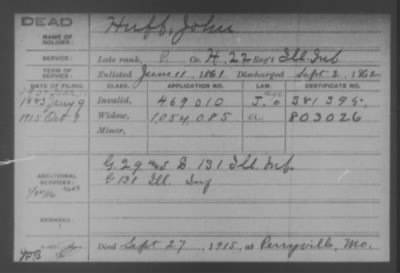 DEAD
NAME OF SOLDIER: Huff, John
SERVICE: Late rank, P. Co. H, 22 Reg't Ill. Inf.
TERM OF SERVICE: Enlisted June 11, 1861. Discharged Sept. 2, 1862
DATE OF FILING. CLASS. APPLICATION NO. LAW. CERTIFICATE NO.
1883 Jany 9 Invalid, 469010 381395.
1915 Oct 9 Widow, 1,054,085 a 803026
Minor,
ADDITIONAL SERVICES: G. 29 & D. 131 Ill. Inf.
G 131 Ill. Inf
REMARKS:
Died Sept 27, 1915, at Perryville, Mo.